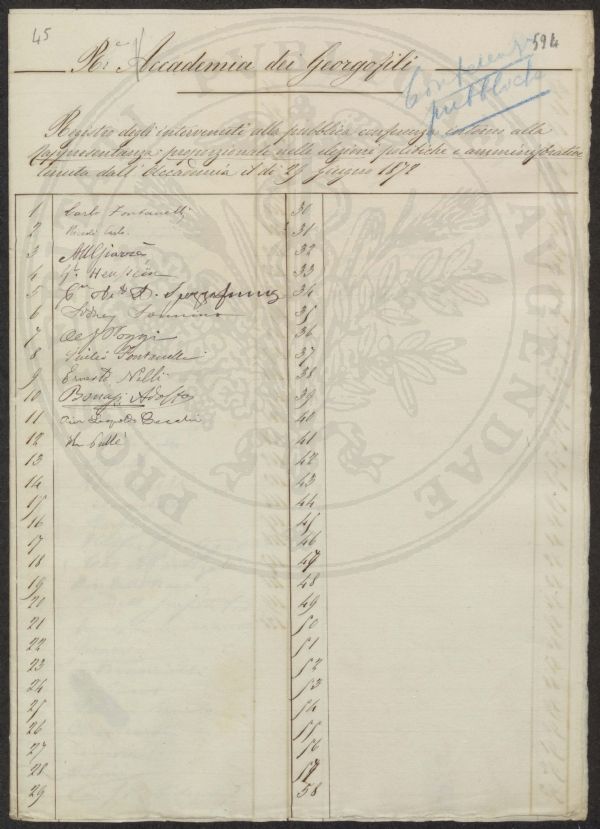 45
594
R.e Accademia dei Georgofili
Conferenza
pubblica
Registro degli intervenuti alla pubblica conferenza intorno alla
rappresentanza proporzionale nelle elezioni politiche e amministrative
tenuta dall'Accademia il dì 29 giugno 1872
1 Carlo Fontanelli
2
3
4
5
6 Sidney Sonnino
7 Poggi
8 Fontanelli
9 Ernesto Nelli
10 Bonasi Adolfo
11 Leopoldo Cecchi
12
13
14
15
16
17
18
19
20
21
22
23
24
25
26
27
28
29
30
31
32
33
34
35
36
37
38
39
40
41
42
43
44
45
46
47
48
49
50
51
52
53
54
55
56
57
58